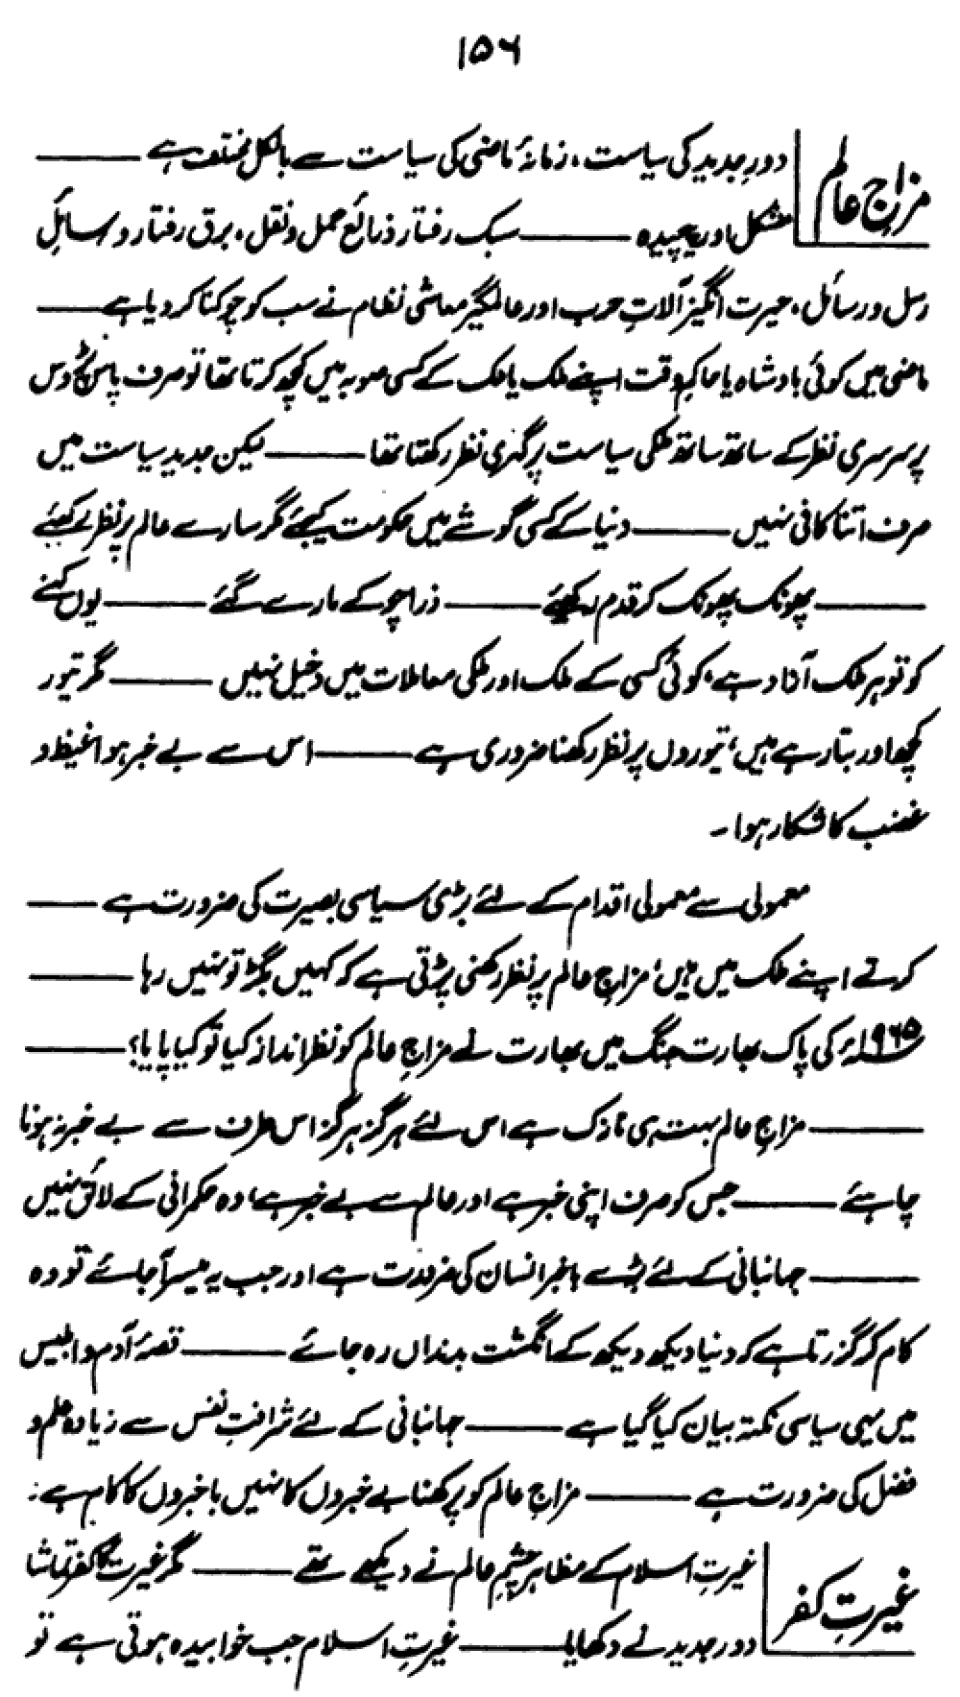 ۱۵۶
مزاجِ عالم
دورِ جدید کی سیاست، زمانۂ ماضی کی سیاست سے بالکل مختلف ہے ———
مشکل اور پیچیدہ ——— سبک رفتار ذرائع حمل و نقل، برق رفتار وسائلِ
رسل و رسائل، حیرت انگیز آلاتِ حرب اور عالمگیر معاشی نظام نے سب کو چوکنا کر دیا ہے ———
ماضی میں کوئی بادشاہ یا حاکمِ وقت اپنے ملک یا ملک کے کسی صوبہ میں کچھ کرتا تھا تو صرف پاس پڑوس
پر سرسری نظر کے ساتھ ساتھ ملکی سیاست پر گہری نظر رکھتا تھا ——— لیکن جدید سیاست میں
صرف اتنا کافی نہیں ——— دنیا کے کسی گوشے میں حکومت کیجئے مگر سارے عالم پر نظر رکھیئے
——— پھونک پھونک کر قدم رکھیئے ——— ذرا چوکے مارے گئے ——— یوں کہنے
کو تو ہر ملک آزاد ہے، کوئی کسی کے ملک اور ملکی معاملات میں دخیل نہیں ——— مگر تیور
کچھ اور بتا رہے ہیں، تیوروں پر نظر رکھنا ضروری ہے ——— اس سے بے خبر ہوا غیظ و
غضب کا شکار ہوا ۔
معمولی سے معمولی اقدام کے لئے بڑی سیاسی بصیرت کی ضرورت ہے ———
کرتے اپنے ملک میں ہیں، مزاجِ عالم پر نظر رکھنی پڑتی ہے کہ کہیں بگڑ تو نہیں رہا ———
۱۹۶۵ء کی پاک بھارت جنگ میں بھارت نے مزاجِ عالم کو نظر انداز کیا تو کیا پایا؟ ———
——— مزاجِ عالم بہت ہی نازک ہے اس لئے ہرگز ہرگز اس طرف سے بے خبر نہ ہونا
چاہئے ——— جس کو صرف اپنی خبر ہے اور عالم سے بے خبر ہے، وہ حکمرانی کے لائق نہیں
——— جہانبانی کے لئے بڑے باخبر انسان کی ضرورت ہے اور جب یہ میسر آجائے تو وہ
کام کر گزرتا ہے کہ دنیا دیکھ دیکھ کے انگشت بدنداں رہ جائے ——— قصۂ آدم و ابلیس
میں یہی سیاسی نکتہ بیان کیا گیا ہے ——— جہانبانی کے لئے شرافتِ نفس سے زیادہ علم و
فضل کی ضرورت ہے ——— مزاجِ عالم کو پرکھنا بے خبروں کا نہیں باخبروں کا کام ہے :
غیرتِ کفر
غیرتِ اسلام کے مظاہر چشمِ عالم نے دیکھے تھے ——— مگر غیرتِ کفر کا تماشا
دورِ جدید نے دکھایا ——— غیرتِ اسلام جب خوابیدہ ہوتی ہے تو